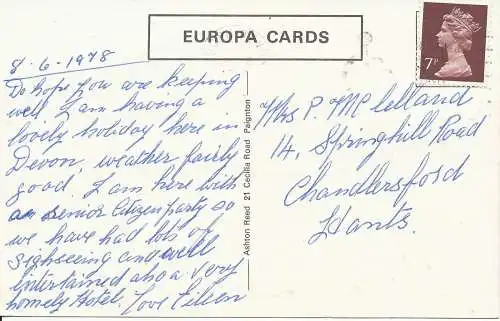 EUROPA CARDS
8.6-1978
Do hope you are keeping
well I am having a
lovely holiday here in
Devon, weather fairly
good. I am here with
a senior Citizen party so
we have had lots of
sighseeing and well
intertained also a very
homely Hotel. Love Eileen
Ashton Reed 21 Cecilia Road Paignton
7P
Mrs P. McLelland
14, Springhill Road
Chandlersfosd
Hants.